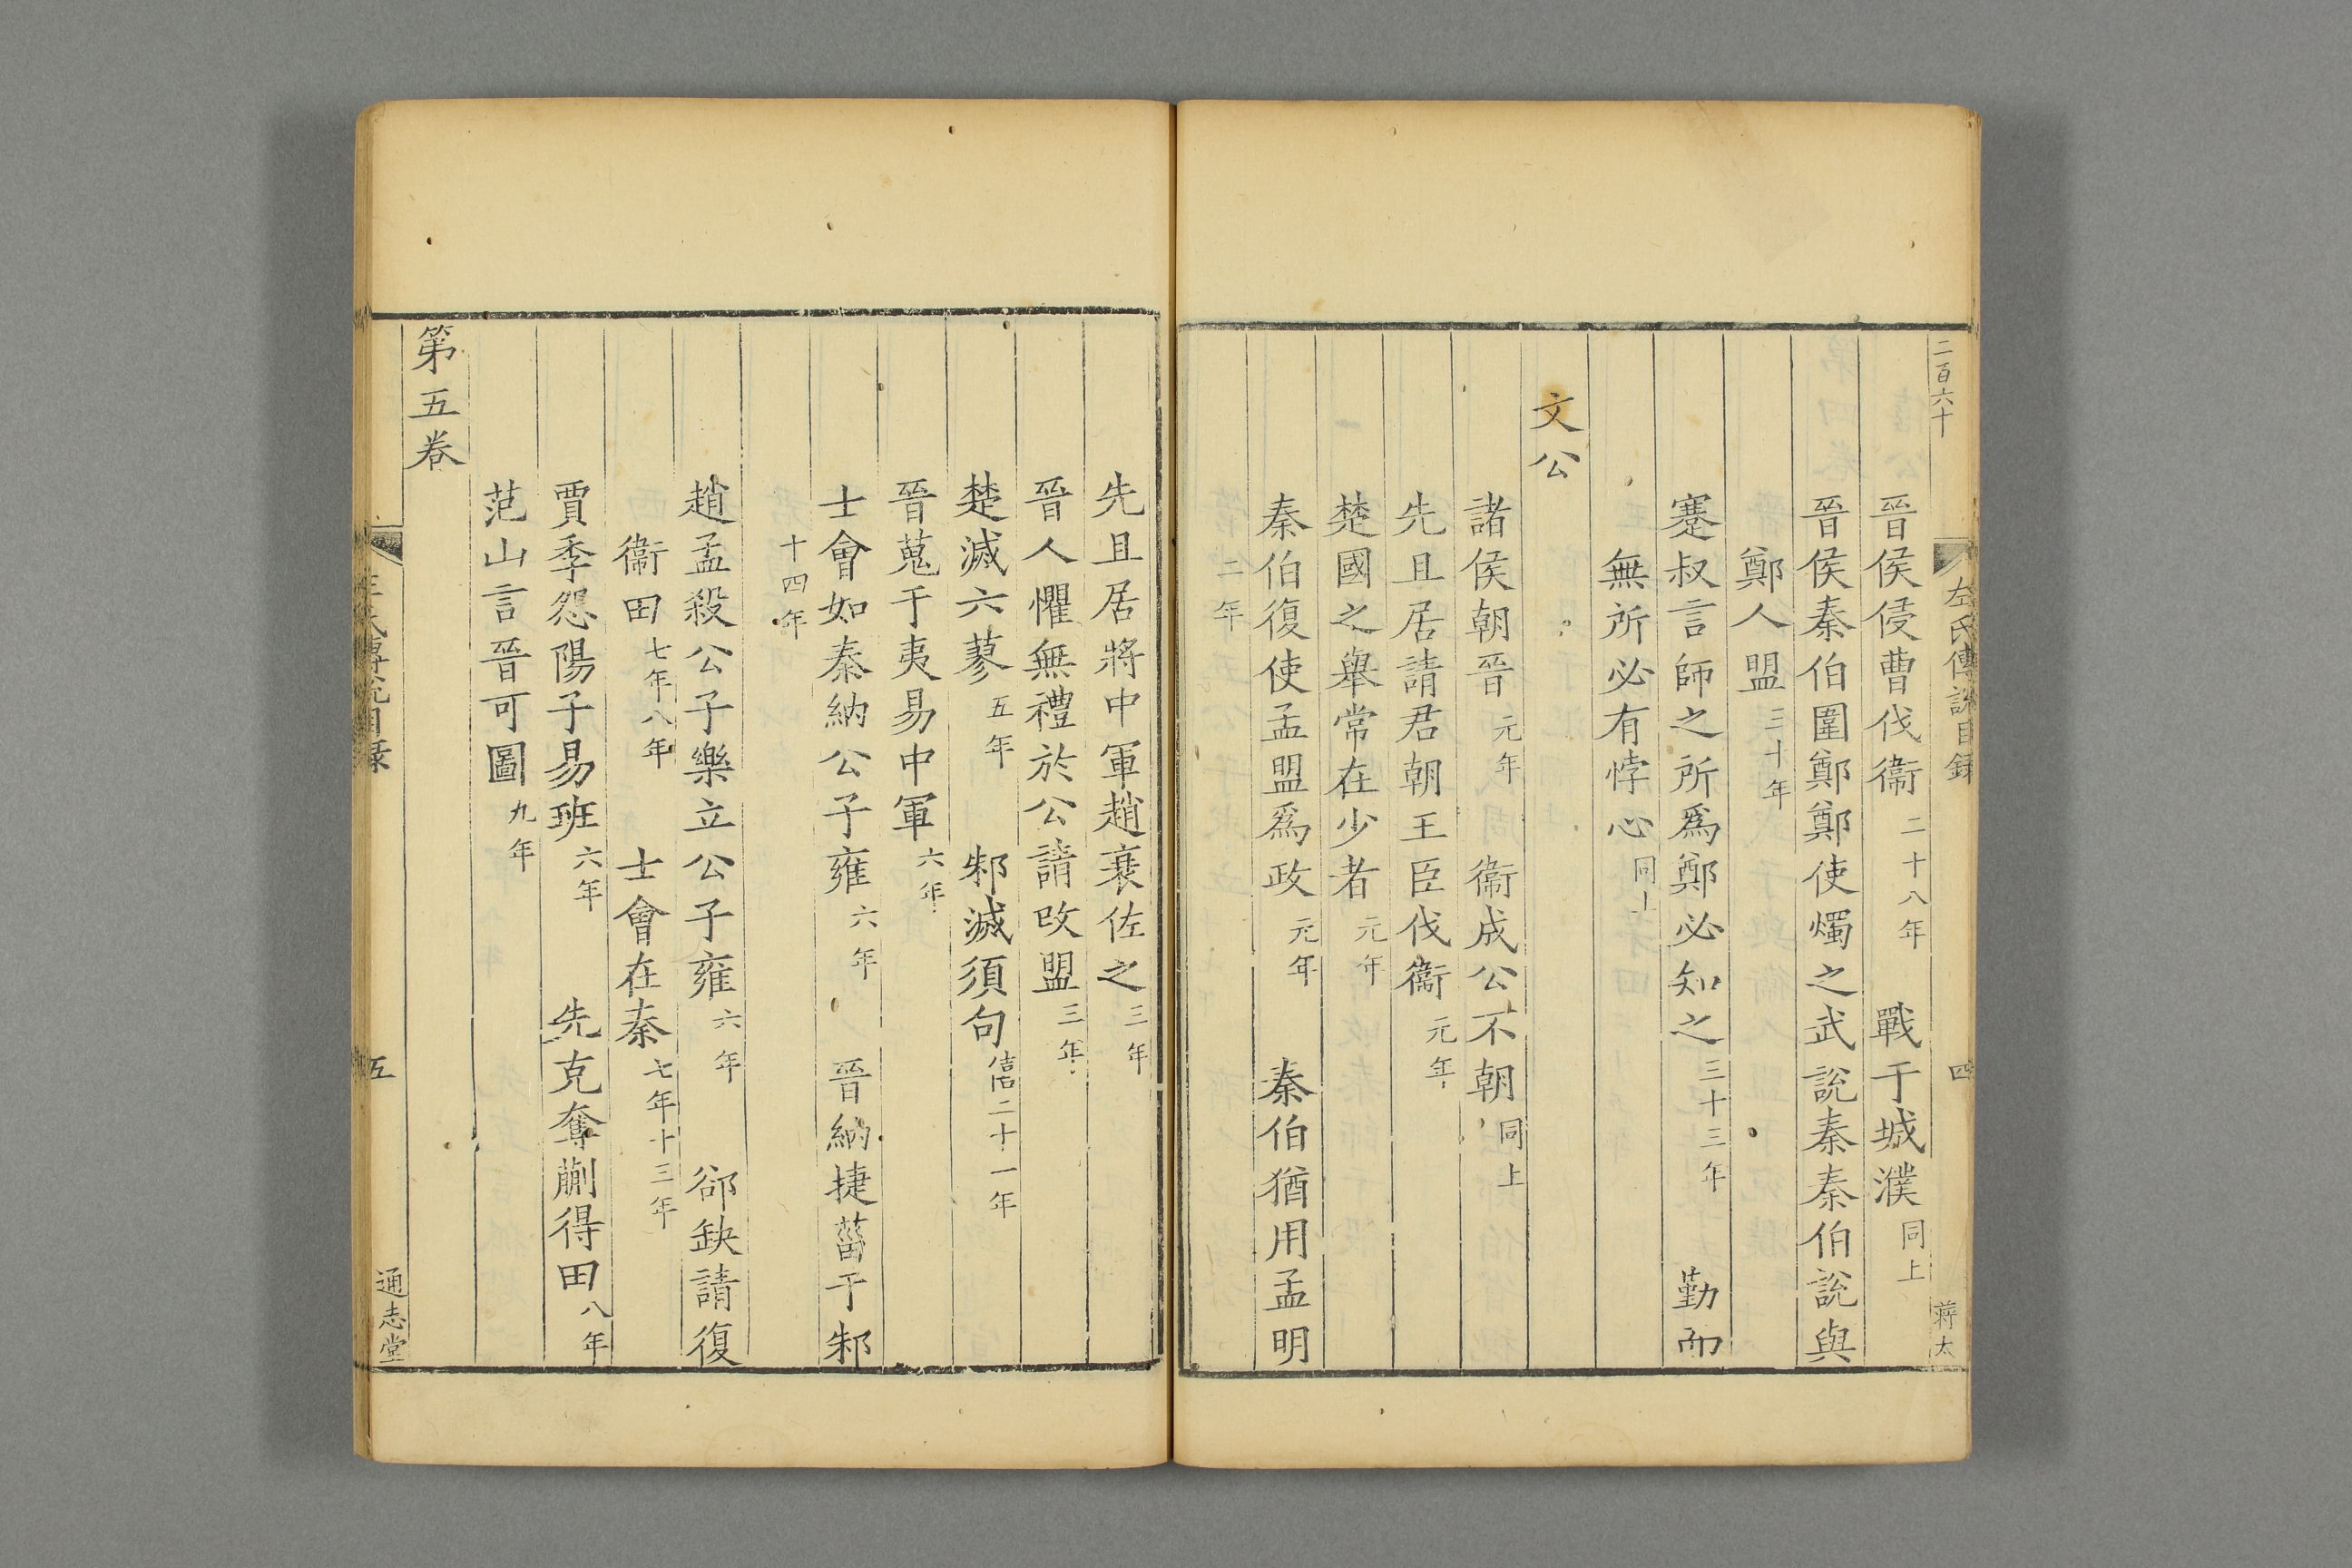 二百六十
左氏傳說目錄
四
蔣太
晉侯侵曹伐衞 二十八年 戰于城濮 同上
晉侯秦伯圍鄭鄭使燭之武說秦秦伯說與
鄭人盟 三十年
蹇叔言師之所爲鄭必知之 三十三年 勤而
無所必有悖心 同上
文公
諸侯朝晉 元年 衞成公不朝 同上
先且居請君朝王臣伐衞 元年
楚國之舉常在少者 元年
秦伯復使孟盟爲政 元年 秦伯猶用孟明
二年
先且居將中軍趙衰佐之 三年
晉人懼無禮於公請改盟 三年
楚滅六蓼 五年 邾滅須句 僖二十一年
晉蒐于夷易中軍 六年
士會如秦納公子雍 六年 晉納捷菑于邾
十四年
趙孟殺公子樂立公子雍 六年 郤缺請復
衞田 七年八年 士會在秦 七年十三年
賈季怨陽子易班 六年 先克奪蒯得田 八年
范山言晉可圖 九年
第五卷
左氏傳說目錄
五
通志堂